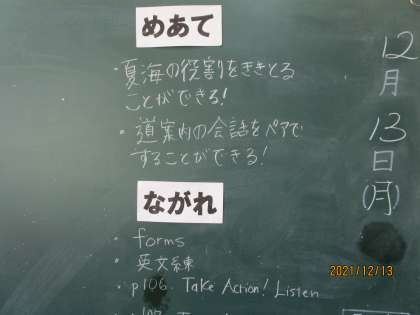 めあて
・夏海の役割をききとる
ことができる!
・道案内の会話をペアで
することができる!
ながれ
・forms
・英文練
・p106. Take Action! Listen
12月13日(月)
2021/12/13